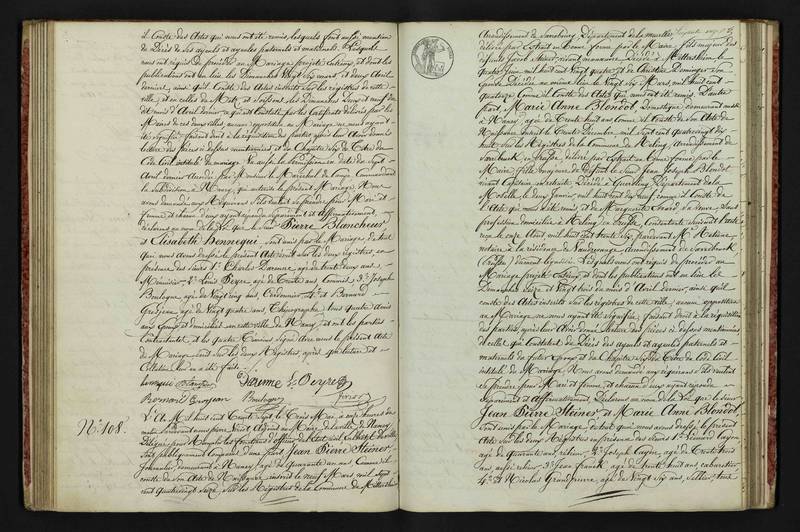 il Conste des Actes qui nous ont été remis, lesquels font aussi mention
de Décès de ses ayeuls et ayeules paternels et maternels. Lesquels
nous ont requis de procéder au Mariage projeté entr'eux, et dont les
publications ont eu lieu les Dimanches Vingt Six mars, et deux Avril
dernier, ainsi qu'il Conste des Actes inscrits sur les registres de cette
ville, et en celles de Metz, et les Dimanches Deux et neuf du
dit mois d'Avril dernier, ce qui est Constaté par les Certificats délivrés par les
Maires de ces deux villes, aucune opposition au Mariage ne nous ayant
été signifiée, faisant droit à la réquisition des parties, après leur avoir donné
lecture des pièces ci dessus mentionnées et du Chapitre Six du Titre du
Code Civil intitulé du mariage. Vu aussi la permission en date du Sept
Avril dernier, par Monsieur le Maréchal de Camp Commandant
la Subdivision à Nancy, qui autorise le présent Mariage. Nous
avons demandé aux Requérans s'ils veulent se prendre pour Mari et
femme, et chacun d'eux ayant répondu séparément et affirmativement,
déclarons au nom de la Loi que le Sieur Pierre Blancheur
et Elisabeth Hennequi sont unis par le Mariage, de tout
quoi nous avons dressé le présent Acte sur les deux registres, en
présence des Sieurs 1° Charles Darenne, agé de trente deux ans,
Menuisier, 2° Louis Peyre, agé de Trente ans, Commis, 3° Joseph
Boulogne, agé de Vingt cinq ans, Cordonnier, 4° et Bernard
Grosjean, agé de Vingt quatre ans, Typographe, tous quatre amis
aux époux, et domiciliés en cette ville de Nancy, et ont les parties
Contractantes, et les quatre Témoins Signé avec nous le présent Acte
de Mariage sur les deux Registres, après que lecture et
Collation leur en a été faite.
Darenne L. Peyre
Bernard Grosjean Boulogne
N° 108.
L'An Mil huit cent Trente Sept le Trois Mai, à onze heures du
matin, pardevant nous Adjoint au Maire de la ville de Nancy
Délégué pour Remplir les fonctions d'officier de l'Etat civil
Sont publiquement Comparus d'une part Jean Pierre Steiner,
Journalier, demeurant à Nancy, agé de Quarante un ans, Comme il
conste de son Acte de Naissance inscrit le neuf Mars, mil Sept
cent quatrevingt Seize, sur les Registres de la Commune de Mittersheim
Arrondissement de Sarrebourg, Département de la Meurthe,
délivré par Extrait en bonne forme par le Maire, fils majeur des
défunts Jacob Steiner, vivant manœuvre, Décédé à Mittersheim le
quatre mil huit cent Vingt quatre, et de Christine Deminger son
épouse, Décédée au même lieu le Vingt Six Mars, mil huit cent
quatorze, Comme il Conste des Actes qui nous ont été remis. D'autre
part, Marie Anne Blondot, Domestique, demeurant aussi
à Nancy, agée de Trente huit ans, comme il Conste de son Acte de
Naissance inscrit le Trente Decembre, mil Sept cent quatrevingt dix
huit sur les Registres de la Commune de Reling, Arrondissement de
Sarrelouis en Prusse, délivré par Extrait en bonne forme par le
Maire, fille majeure de Défunt le Sieur Jean Joseph Blondot
vivant Capitaine en retraite, Décédé à Guerling, Département de la
Moselle, le deux Janvier mil huit cent dix neuf, comme il Conste de
l'Acte qui a été remis, et de Marguerite sa Veuve, Sans
profession, domiciliée à Reling en Prusse, Consentante suivant l'acte
reçu le onze Avril mil huit cent trente Sept pardevant M° Motiane
notaire à la résidence de Vaudrevange, Arrondissement de Sarrelouis
(Prusse) dûment légalisé. Lesquels nous ont requis de procéder au
Mariage projeté entr'eux, et dont les publications ont eu lieu les
Dimanches Seize et Vingt trois du mois d'Avril dernier, ainsi qu'il
conste des Actes inscrits sur les registres de cette ville, aucune opposition
au Mariage ne nous ayant été signifiée, faisant droit à la réquisition
des parties, après leur avoir donné Lecture des pièces ci dessus mentionnées
et celles qui Constatent les Décès des ayeuls et ayeules paternels et
maternels du futur époux, et du Chapitre Six du Titre du Code Civil
intitulé du Mariage. Nous avons demandé aux requérans s'ils veulent
se prendre pour Mari et femme, et chacun d'eux ayant répondu
séparément et affirmativement, Déclarons au nom de la Loi que le Sieur
Jean Pierre Steiner, et Marie Anne Blondot,
sont unis par le Mariage, de tout quoi nous avons dressé le présent
Acte sur les deux Registres, en présence des Sieurs 1° Léonard Cayen
agé de quarante ans, relieur, 2° Joseph Cayen, agé de Trente trois
ans, aussi relieur, 3° Jean Franck, agé de Trente huit ans, cabaretier,
4° et Nicolas Grandpierre, agé de Vingt Six ans, Sellier, tous